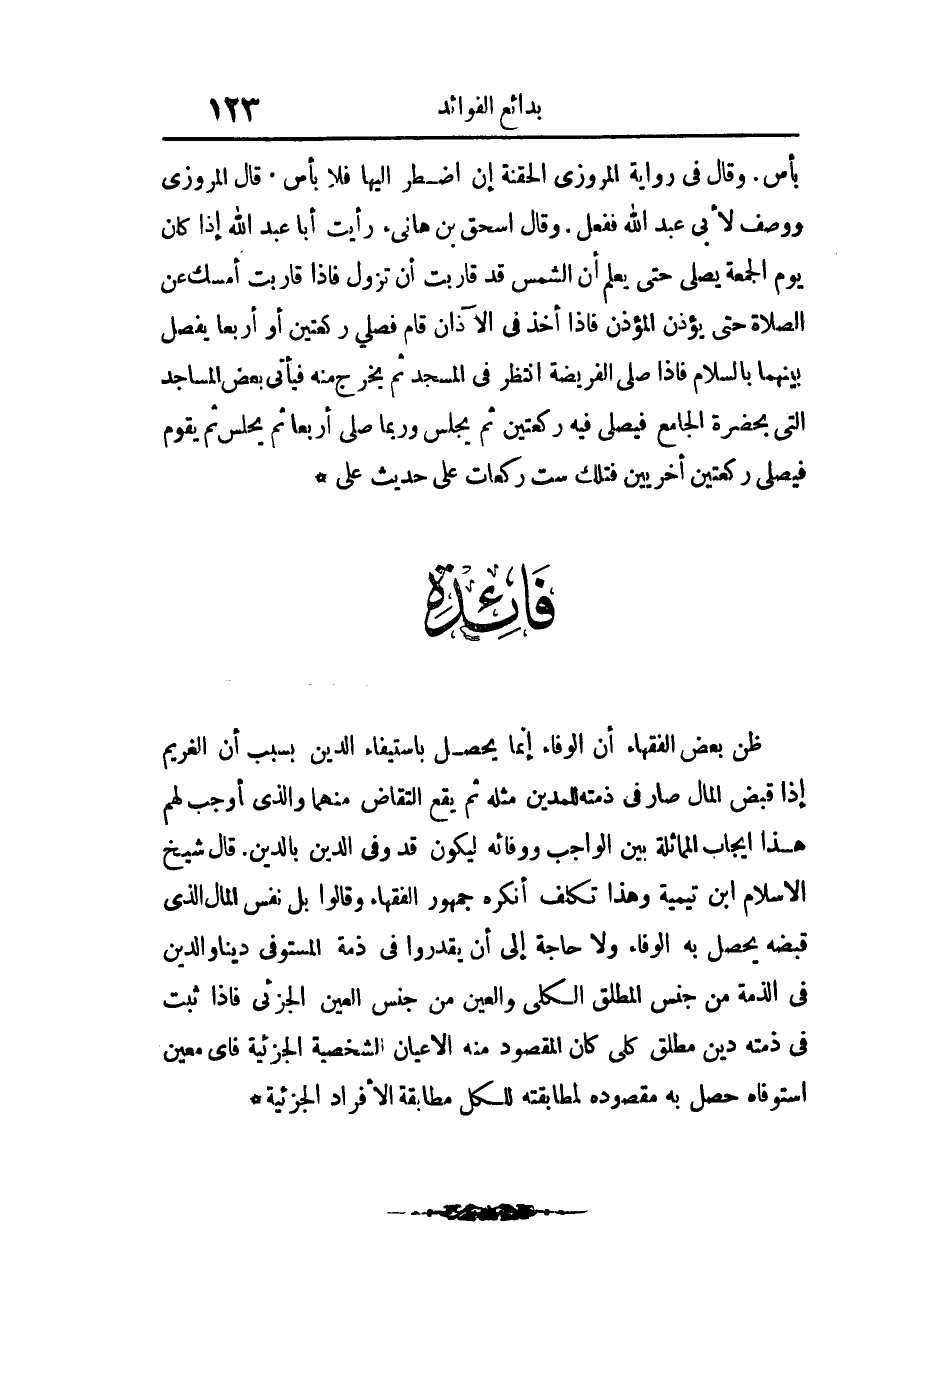 بدائع الفوائد ١٢٣
بأس. وقال فى رواية المروزى الحقنة إن اضطر اليها فلا بأس. قال المروزى
ووصف لأبى عبد الله ففعل. وقال اسحق بن هانىء رأيت أبا عبد الله إذا كان
يوم الجمعة يصلى حتى يعلم أن الشمس قد قاربت أن تزول فاذا قاربت أمسك عن
الصلاة حتى يؤذن المؤذن فاذا أخذ فى الآذان قام فصلي ركعتين أو أربعا يفصل
بينهما بالسلام فاذا صلى الفريضة انتظر فى المسجد ثم يخرج منه فيأتى بعض المساجد
التى بحضرة الجامع فيصلى فيه ركعتين ثم يجلس وربما صلى أربعا ثم يجلس ثم يقوم
فيصلى ركعتين أخريين فتلك ست ركعات على حديث على *
فَائِدَة
ظن بعض الفقهاء أن الوفاء إنما يحصل باستيفاء الدين بسبب أن الغريم
إذا قبض المال صار فى ذمته للمدين مثله ثم يقع التقاض منهما والذى أوجب لهم
هذا ايجاب المماثلة بين الواجب ووفائه ليكون قد وفى الدين بالدين. قال شيخ
الاسلام ابن تيمية وهذا تكلف أنكره جمهور الفقهاء وقالوا بل نفس المال الذى
قبضه يحصل به الوفاء ولا حاجة إلى أن يقدروا فى ذمة المستوفى دينا والدين
فى الذمة من جنس المطلق الكلى والعين من جنس العين الجزئى فاذا ثبت
فى ذمته دين مطلق كلى كان المقصود منه الاعيان الشخصية الجزئية فاى معين
استوفاه حصل به مقصوده لمطابقته للكل مطابقة الأفراد الجزئية *